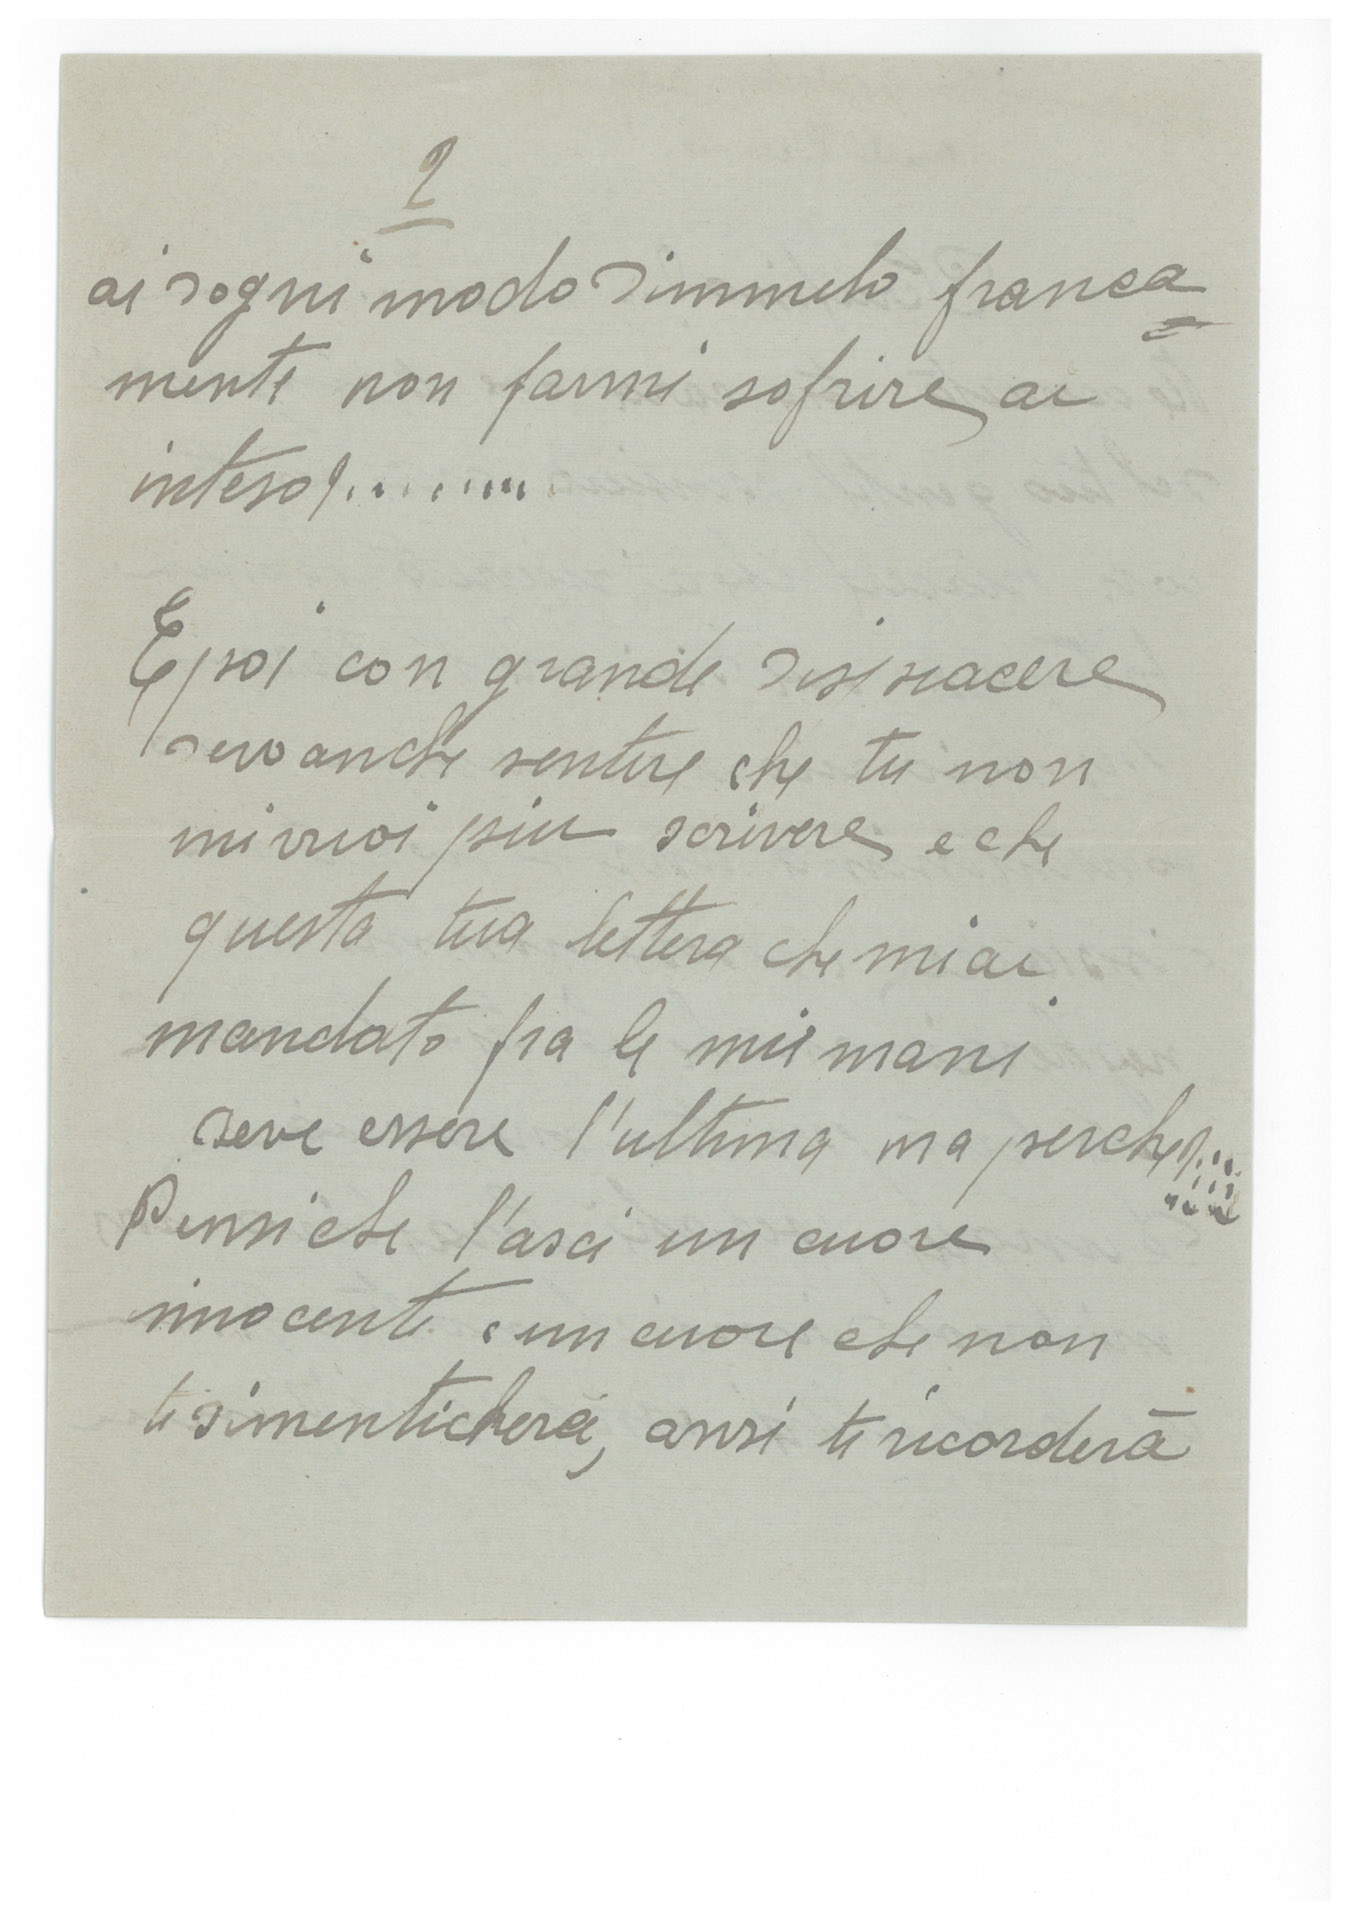 2
ai dogni modo dimmelo franca=
mente non farmi sofrire ai
inteso?.........
E poi con grande dispiacere
devo anche sentire che tu non
mi vuoi piu scrivere e che
questa tua lettera che mi ai
mandato fra le mie mani
deve essere l'ultima ma perche?....
Pensi che l'asci un cuore
innocente. un cuore che non
ti dimenticherà, anzi ti ricorderà